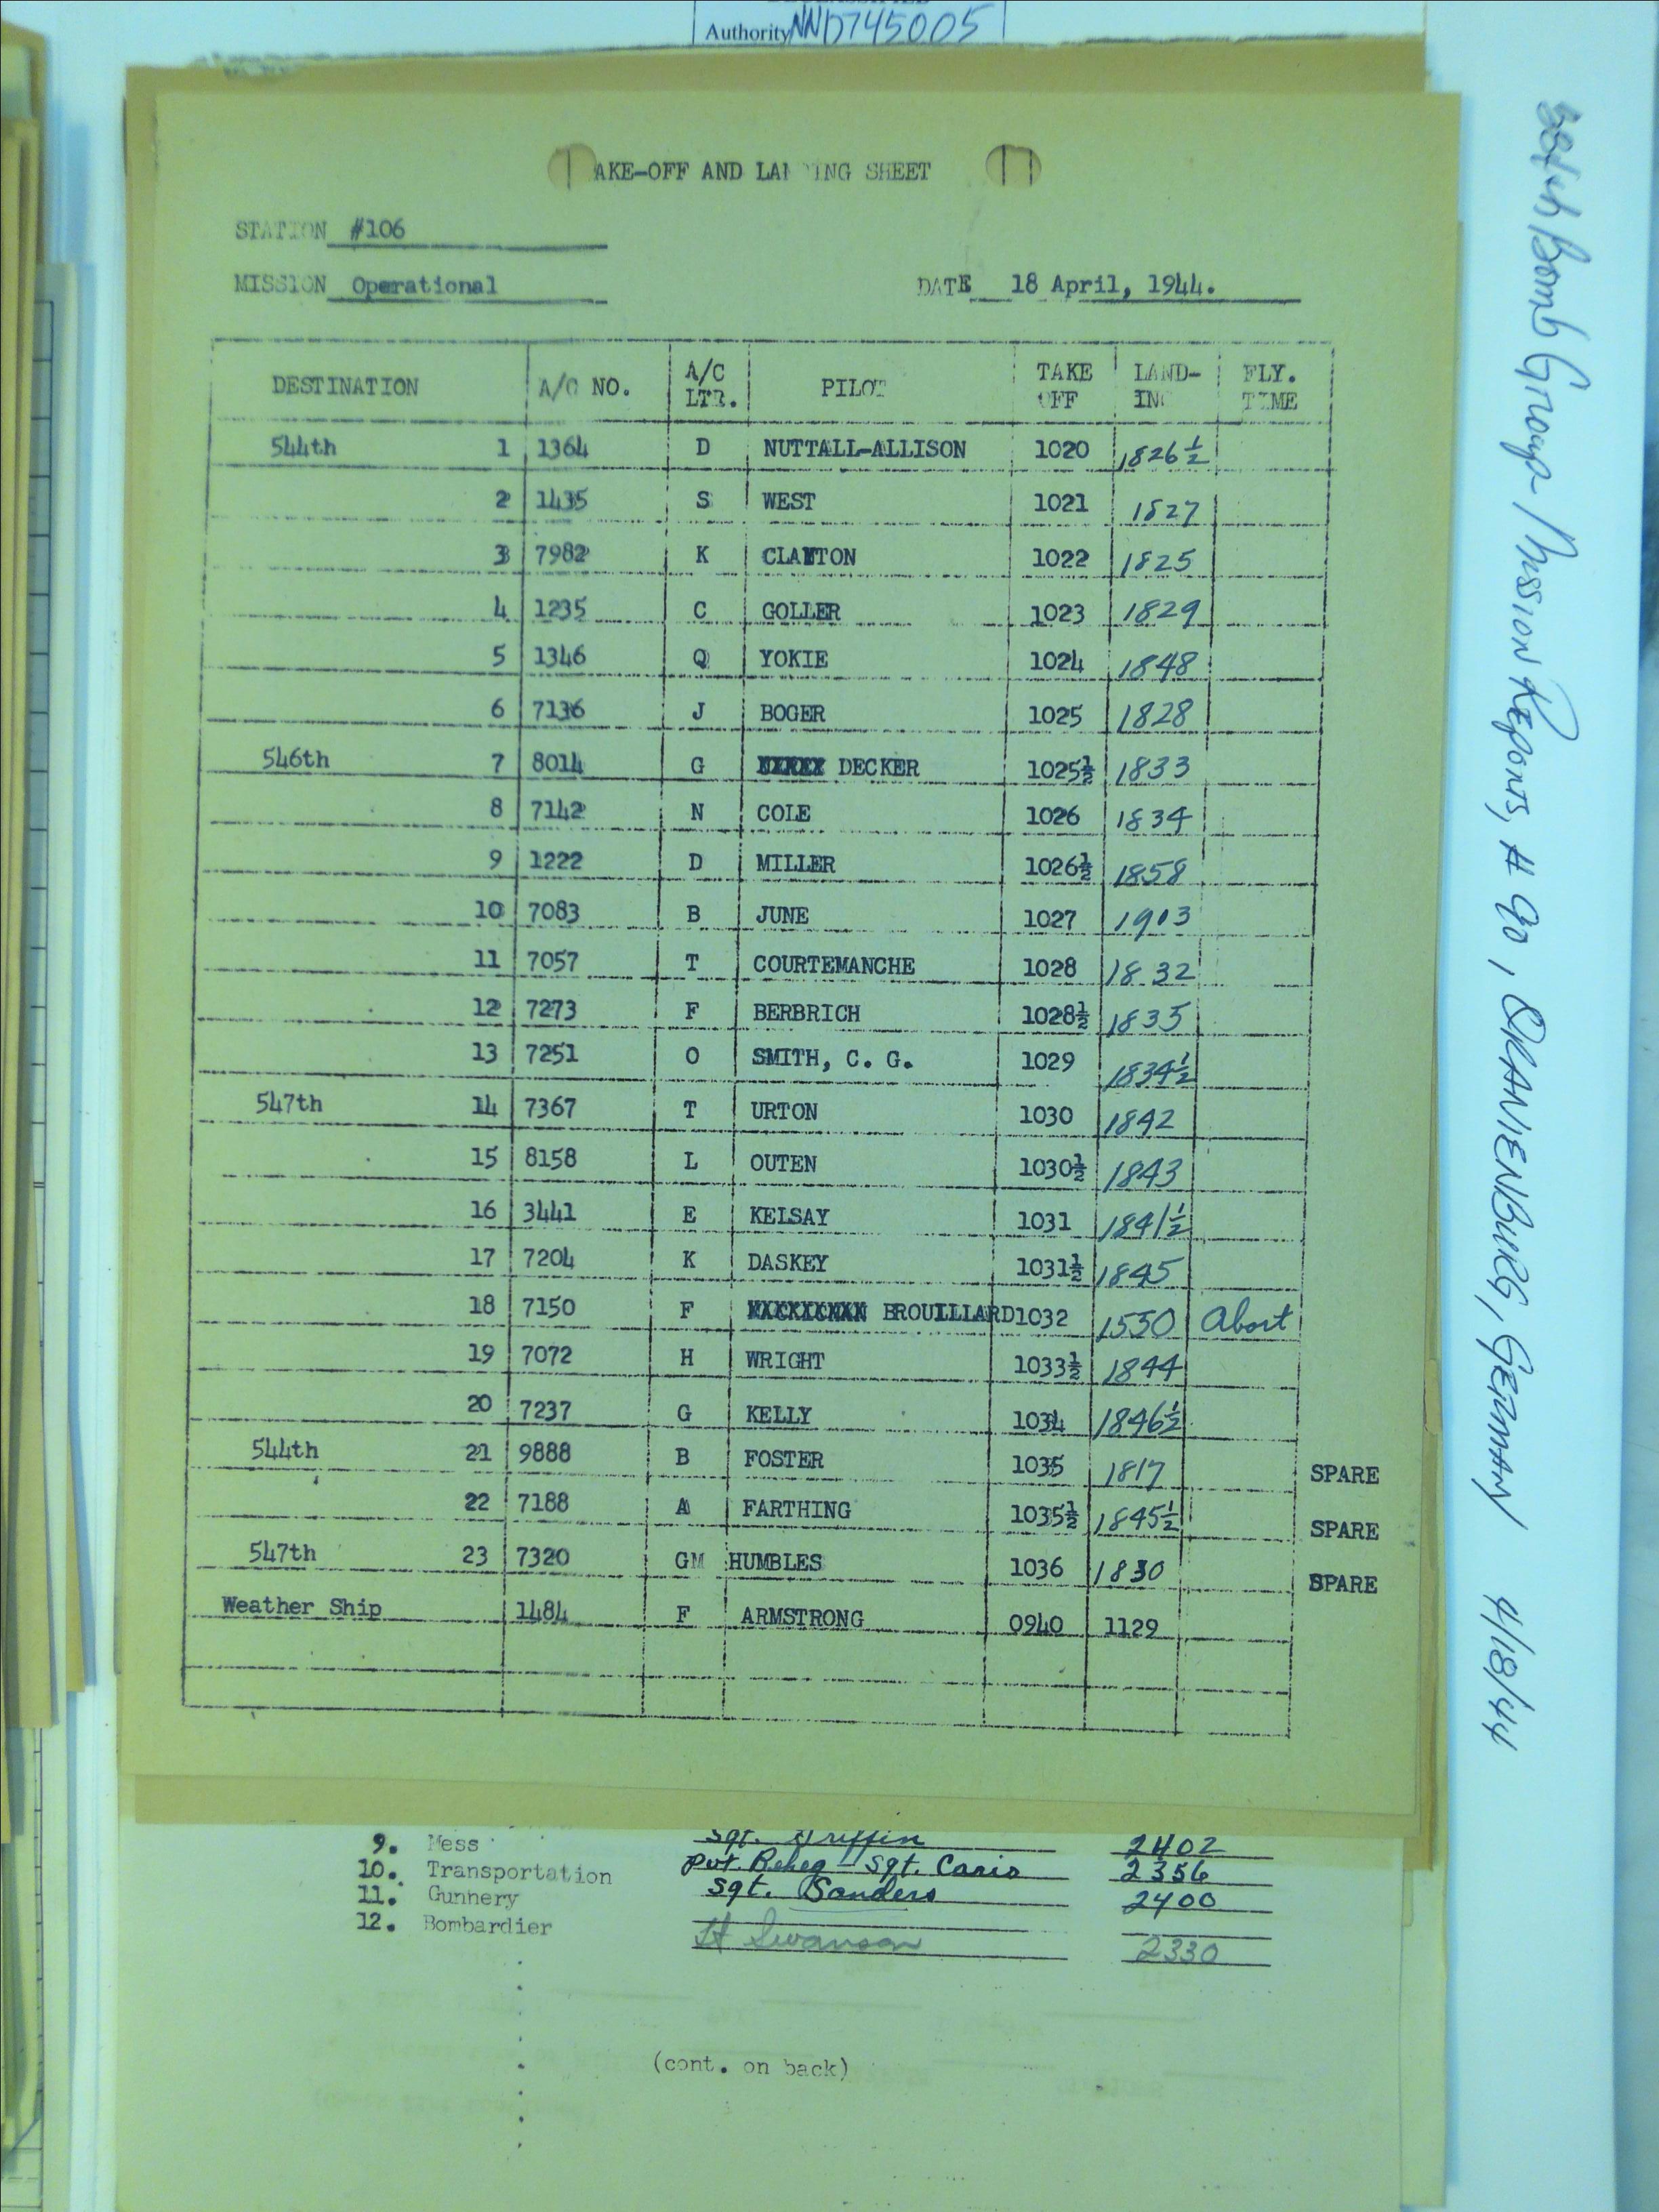 Authority NND745005
AKE-OFF AND LANDING SHEET
STATION #106
MISSION Operational
DATE 18 April, 1944.
DESTINATION A/C NO. A/C LTR. PILOT TAKE OFF LAND-ING FLY. TIME
544th 1 1364 D NUTTALL-ALLISON 1020 1826½
2 1435 S WEST 1021 1827
3 7982 K CLAYTON 1022 1825
4 1235 C GOLLER 1023 1829
5 1346 Q YOKIE 1024 1848
6 7136 J BOGER 1025 1828
546th 7 8014 G DECKER 1025½ 1833
8 7142 N COLE 1026 1834
9 1222 D MILLER 1026½ 1858
10 7083 B JUNE 1027 1903
11 7057 T COURTEMANCHE 1028 1832
12 7273 F BERBRICH 1028½ 1835
13 7251 O SMITH, C. G. 1029 1834½
547th 14 7367 T URTON 1030 1842
15 8158 L OUTEN 1030½ 1843
16 3441 E KELSAY 1031 1841½
17 7204 K DASKEY 1031½ 1845
18 7150 F BROUILLARD 1032 1550 Abort
19 7072 H WRIGHT 1033½ 1844
20 7237 G KELLY 1034 1846½
544th 21 9888 B FOSTER 1035 1817 SPARE
22 7188 A FARTHING 1035½ 1845½ SPARE
547th 23 7320 GM HUMBLES 1036 1830 SPARE
Weather Ship 1484 F ARMSTRONG 0940 1129
9. Mess Sgt. Griffin 2402
10. Transportation Pvt. - Sgt. Caris 2356
11. Gunnery Sgt. Sanders 2400
12. Bombardier Lt Swanson 2330
(cont. on back)
384th Bomb Group Mission Reports, # 90, ORANIENBURG, GERMANY 4/18/44